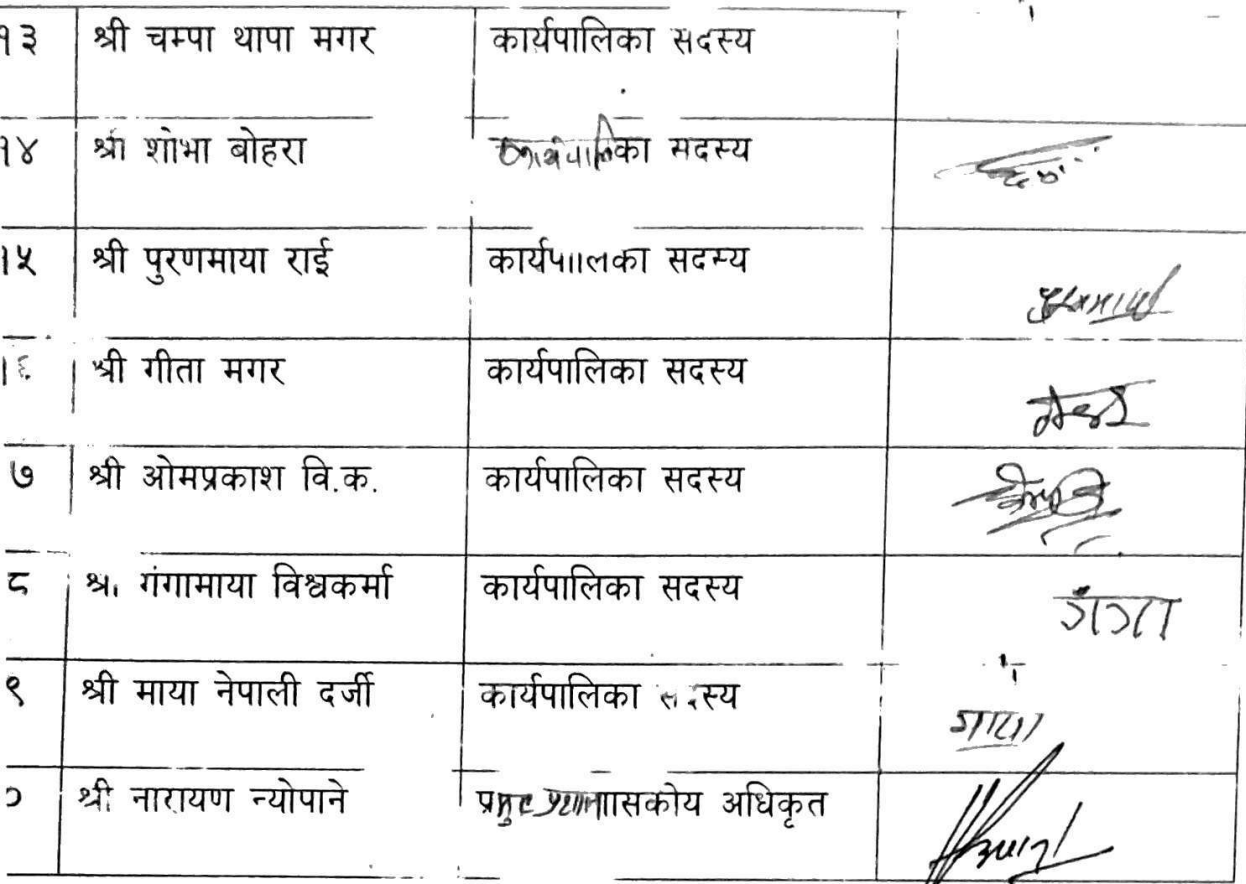 १३ श्री चम्पा थापा मगर कार्यपालिका सदस्य
१४ श्री शोभा बोहरा कार्यपालिका सदस्य
१५ श्री पुरणमाया राई कार्यपालिका सदस्य
१६ श्री गीता मगर कार्यपालिका सदस्य
७ श्री ओमप्रकाश वि.क. कार्यपालिका सदस्य
८ श्री गंगामाया विश्वकर्मा कार्यपालिका सदस्य गंगा
९ श्री माया नेपाली दर्जी कार्यपालिका सदस्य माया
श्री नारायण न्योपाने प्रमुख प्रशासकीय अधिकृत